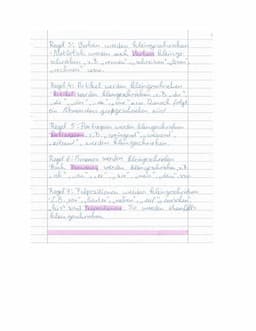 Regel 3: Verben werden kleingeschrieben
Natürlich werden auch Verben kleinge-
schrieben, z.B. „rennen“, „schreiben“, „lesen“,
„rechnen“ usw.
Regel 4: Artikel werden kleingeschrieben
Artikel werden kleingeschrieben z.B. „der“,
„die“, „das“, „ein“, „eine“ usw. Danach folgt
ein Nomen dass großgeschrieben wird.
Regel 5: Partizipien werden kleingeschrieben
z.B. „weinend“,
werden kleingeschrieben.
Regel 6: Pronomen werden kleingeschrieben
Auch Pronomen werden kleingeschrieben z.B.
„ich“, „du“, „er“, „sie“, „mein“, „dein“, usw.
Regel 7: Präpositionen werden kleingeschrieben
Z.B. „vor“, „hinter“, „neben“, „auf“, „zwischen“,
„bis“ sind Präpositionen. Sie werden ebenfalls
kleingeschrieben.